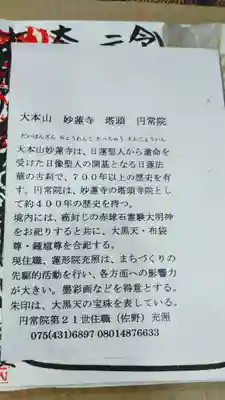 大本山　妙蓮寺　塔頭　円常院
だいほんざん　みょうれんじ　たっちゅう　えんじょういん
大本山妙蓮寺は、日蓮聖人から遺命を
受けた日像聖人の開基となる日蓮法
華の古刹で、７００年以上の歴史を有
す。円常院は、妙蓮寺の塔頭寺院とし
て約４００年の歴史を持つ。
境内には、癌封じの赤縁石霊験大明神
をお祀りすると共に、大黒天・布袋
尊・鍾馗尊を合祀する。
現住職、蓮形院充照は、まちづくりの
先駆的活動を行い、各方面への影響力
が大きい。墨彩画などを得意とする。
朱印は、大黒天の宝珠を表している。
円常院第２１世住職（佐野）充照
075(431)6897 08014876633